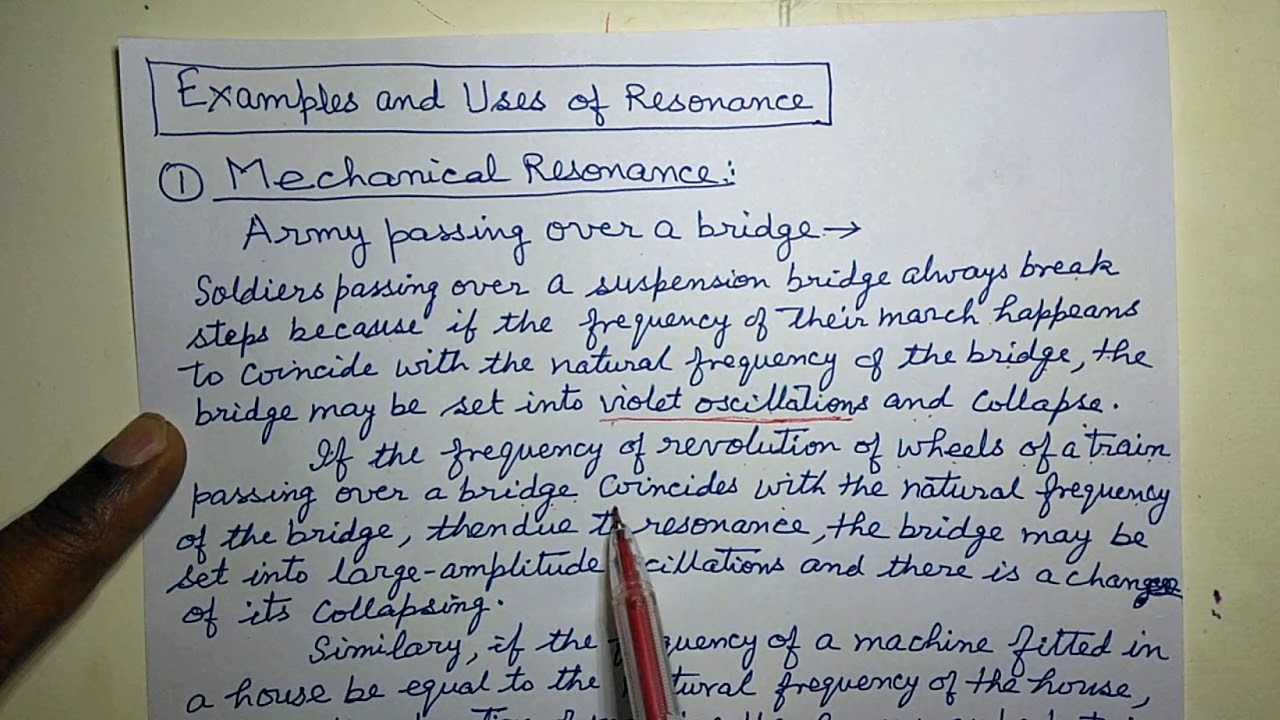 Examples and Uses of Resonance
① Mechanical Resonance:
Army passing over a bridge→
Soldiers passing over a suspension bridge always break
steps because if the frequency of their march happeans
to coincide with the natural frequency of the bridge, the
bridge may be set into violet oscillations and collapse.
If the frequency of revolution of wheels of a train
passing over a bridge coincides with the natural frequency
of the bridge, then due to resonance, the bridge may be
set into large-amplitude cillations and there is a change
of its collapsing.
Similary, if the quency of a machine fitted in
a house be equal to the tural frequency of the house,